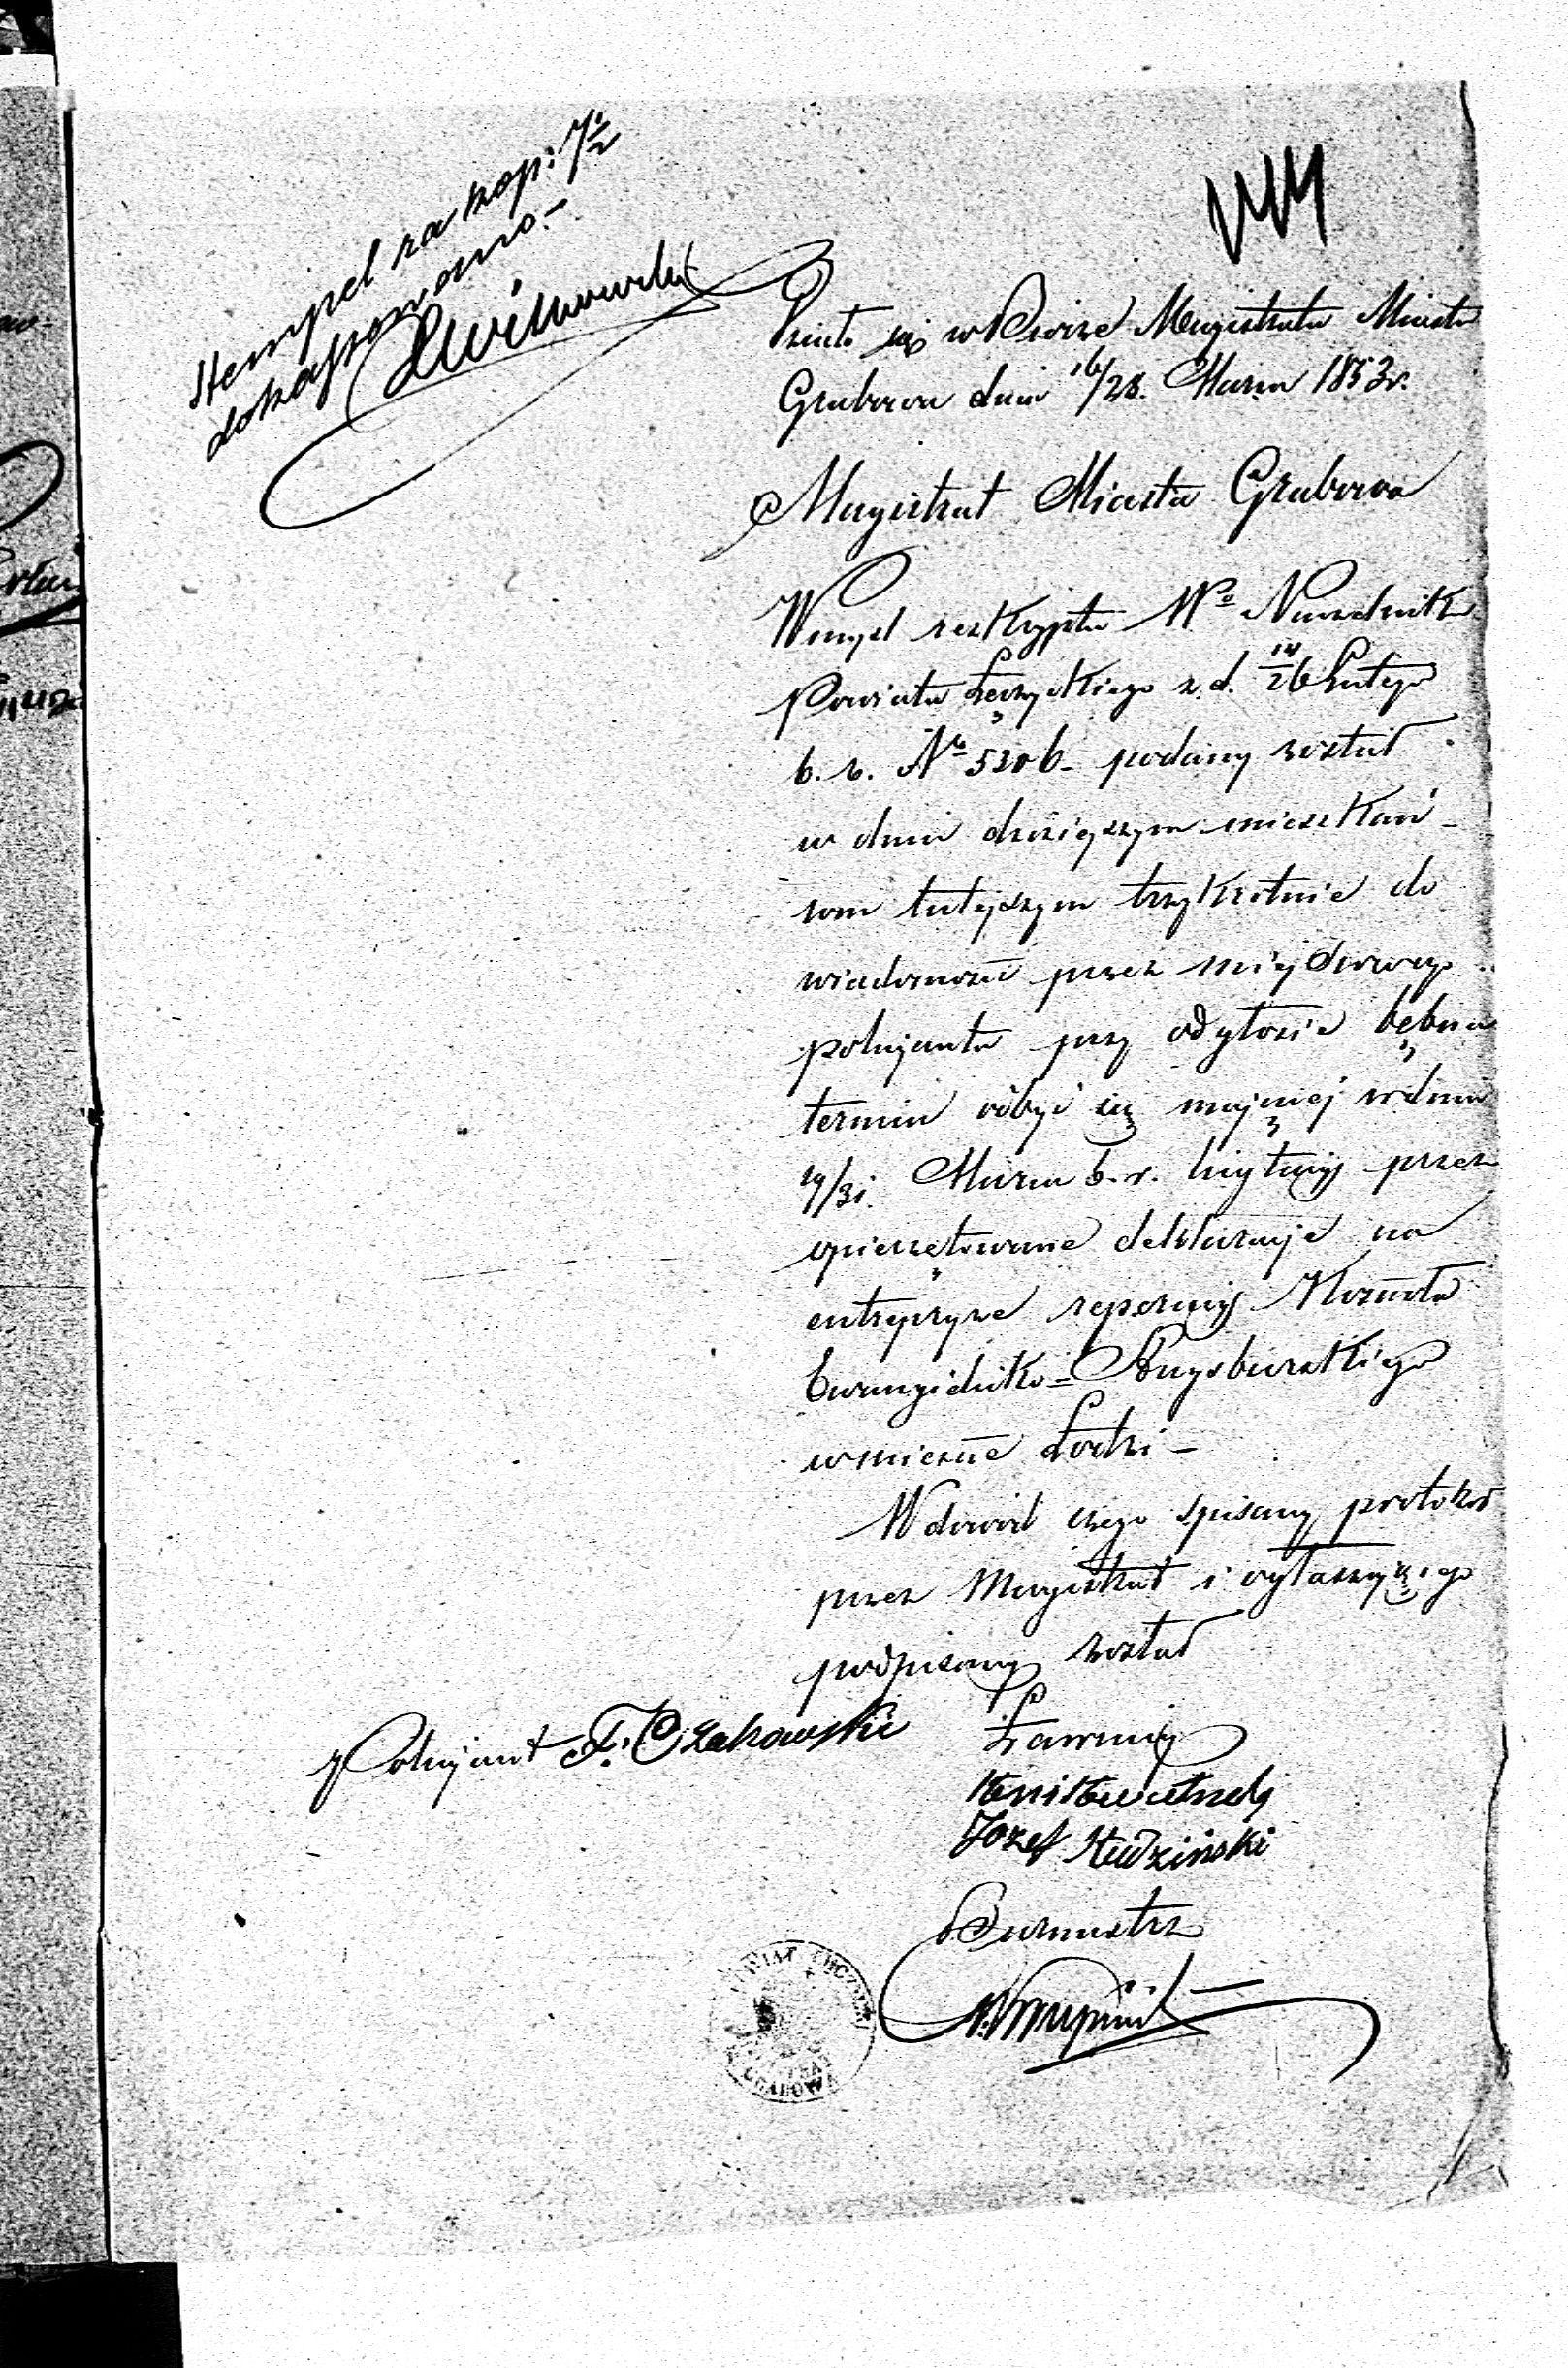 Stempel za kop: 7½
dokassowano.-
Działo się w Biórze Magistratu Miasta
Grabowa dnia 16/28. Marca 1853 r.
Magistrat Miasta Grabowa
W myśl reskryptu Wo Naczelnika
Powiatu Łęczyckiego z. d. 14/26 Lutego
b. r. No 5206 - podany został
w dniu dzisiejszym mieszkań-
com tutejszym trzykrotnie do
wiadomości przez miejscowego
policjanta przy odgłosie bębna
termin odbyć się mającej w dniu
19/31. Marca b. r. licytacyi przez
opieczętowane deklaracje na
entrepryze reperacyi Kościoła
Ewangielicko-Augsburskiego
w mieście Łodzi -
W dowód czego spisany protokół
przez Magistrat i ogłaszającego
podpisany został
Policjant F. Czakowski
Ławnicy
Józef Studziński
Burmistrz
POWIAT ŁĘCZYCKI
GRABOWA